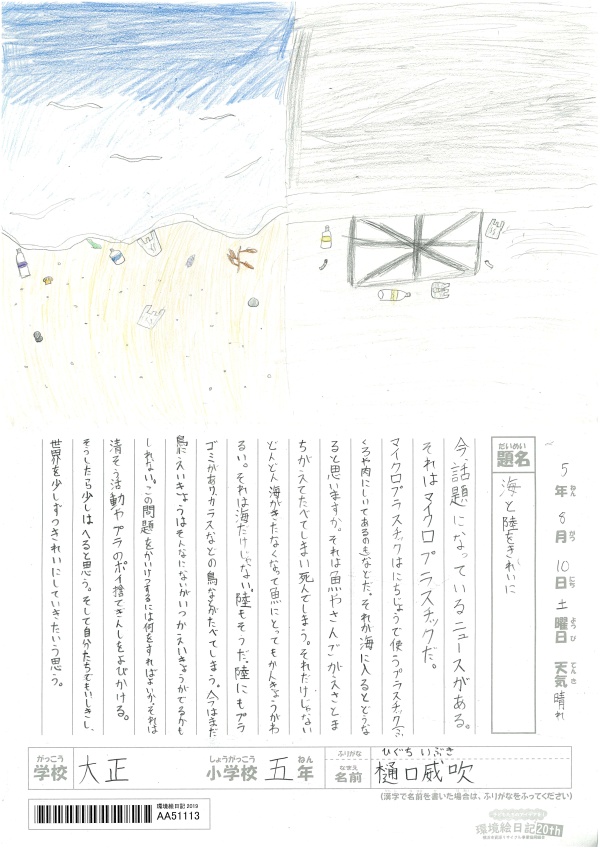 5年ねん 8月がつ 10日にち 土曜日ようび 天気てんき 晴れ
題名だいめい
海と陸をきれいに
今、話題になっているニュースがある。
それはマイクロプラスチックだ。
マイクロプラスチックはにちじょうで使うプラスチック(ふ
くろや肉にしいてあるのも)などだ。それが海に入るとどうな
ると思いますか。それは魚やさんごがえさとま
ちがえてたべてしまい死んでしまう。それだけじゃない
どんどん海がきたなくなって魚にとってもかんきょうがわ
るい。それは海だけじゃない。陸もそうだ。陸にもプラ
ゴミがあり、カラスなどの鳥などがたべてしまう。今はまだ
鳥にえいきょうはそんなにないがいつかえいきょうがでるかも
しれない。この問題をかいけつするには何をすればよいか。それは
清そう活動やプラのポイ捨てきんしをよびかける。
そうしたら少しはへると思う。そして自分たちでもいしきし、
世界を少しずつきれいにしていきたいう思う。
がっこう 学校 大正 しょうがっこう 小学校 五 ねん 年
ふりがな ひぐち いぶき
なまえ 名前 樋口威吹
(漢字で名前を書いた場合は、ふりがなをふってください)
環境絵日記2019
AA51113
環境絵日記20th